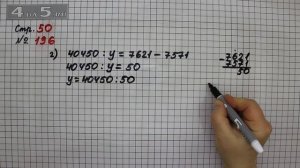 4 а 5 ām
Стр. 50
№ 196
2) 40450 : y = 7621 - 7571
40450 : y = 50
y = 40450 : 50
- 7621
7571
50